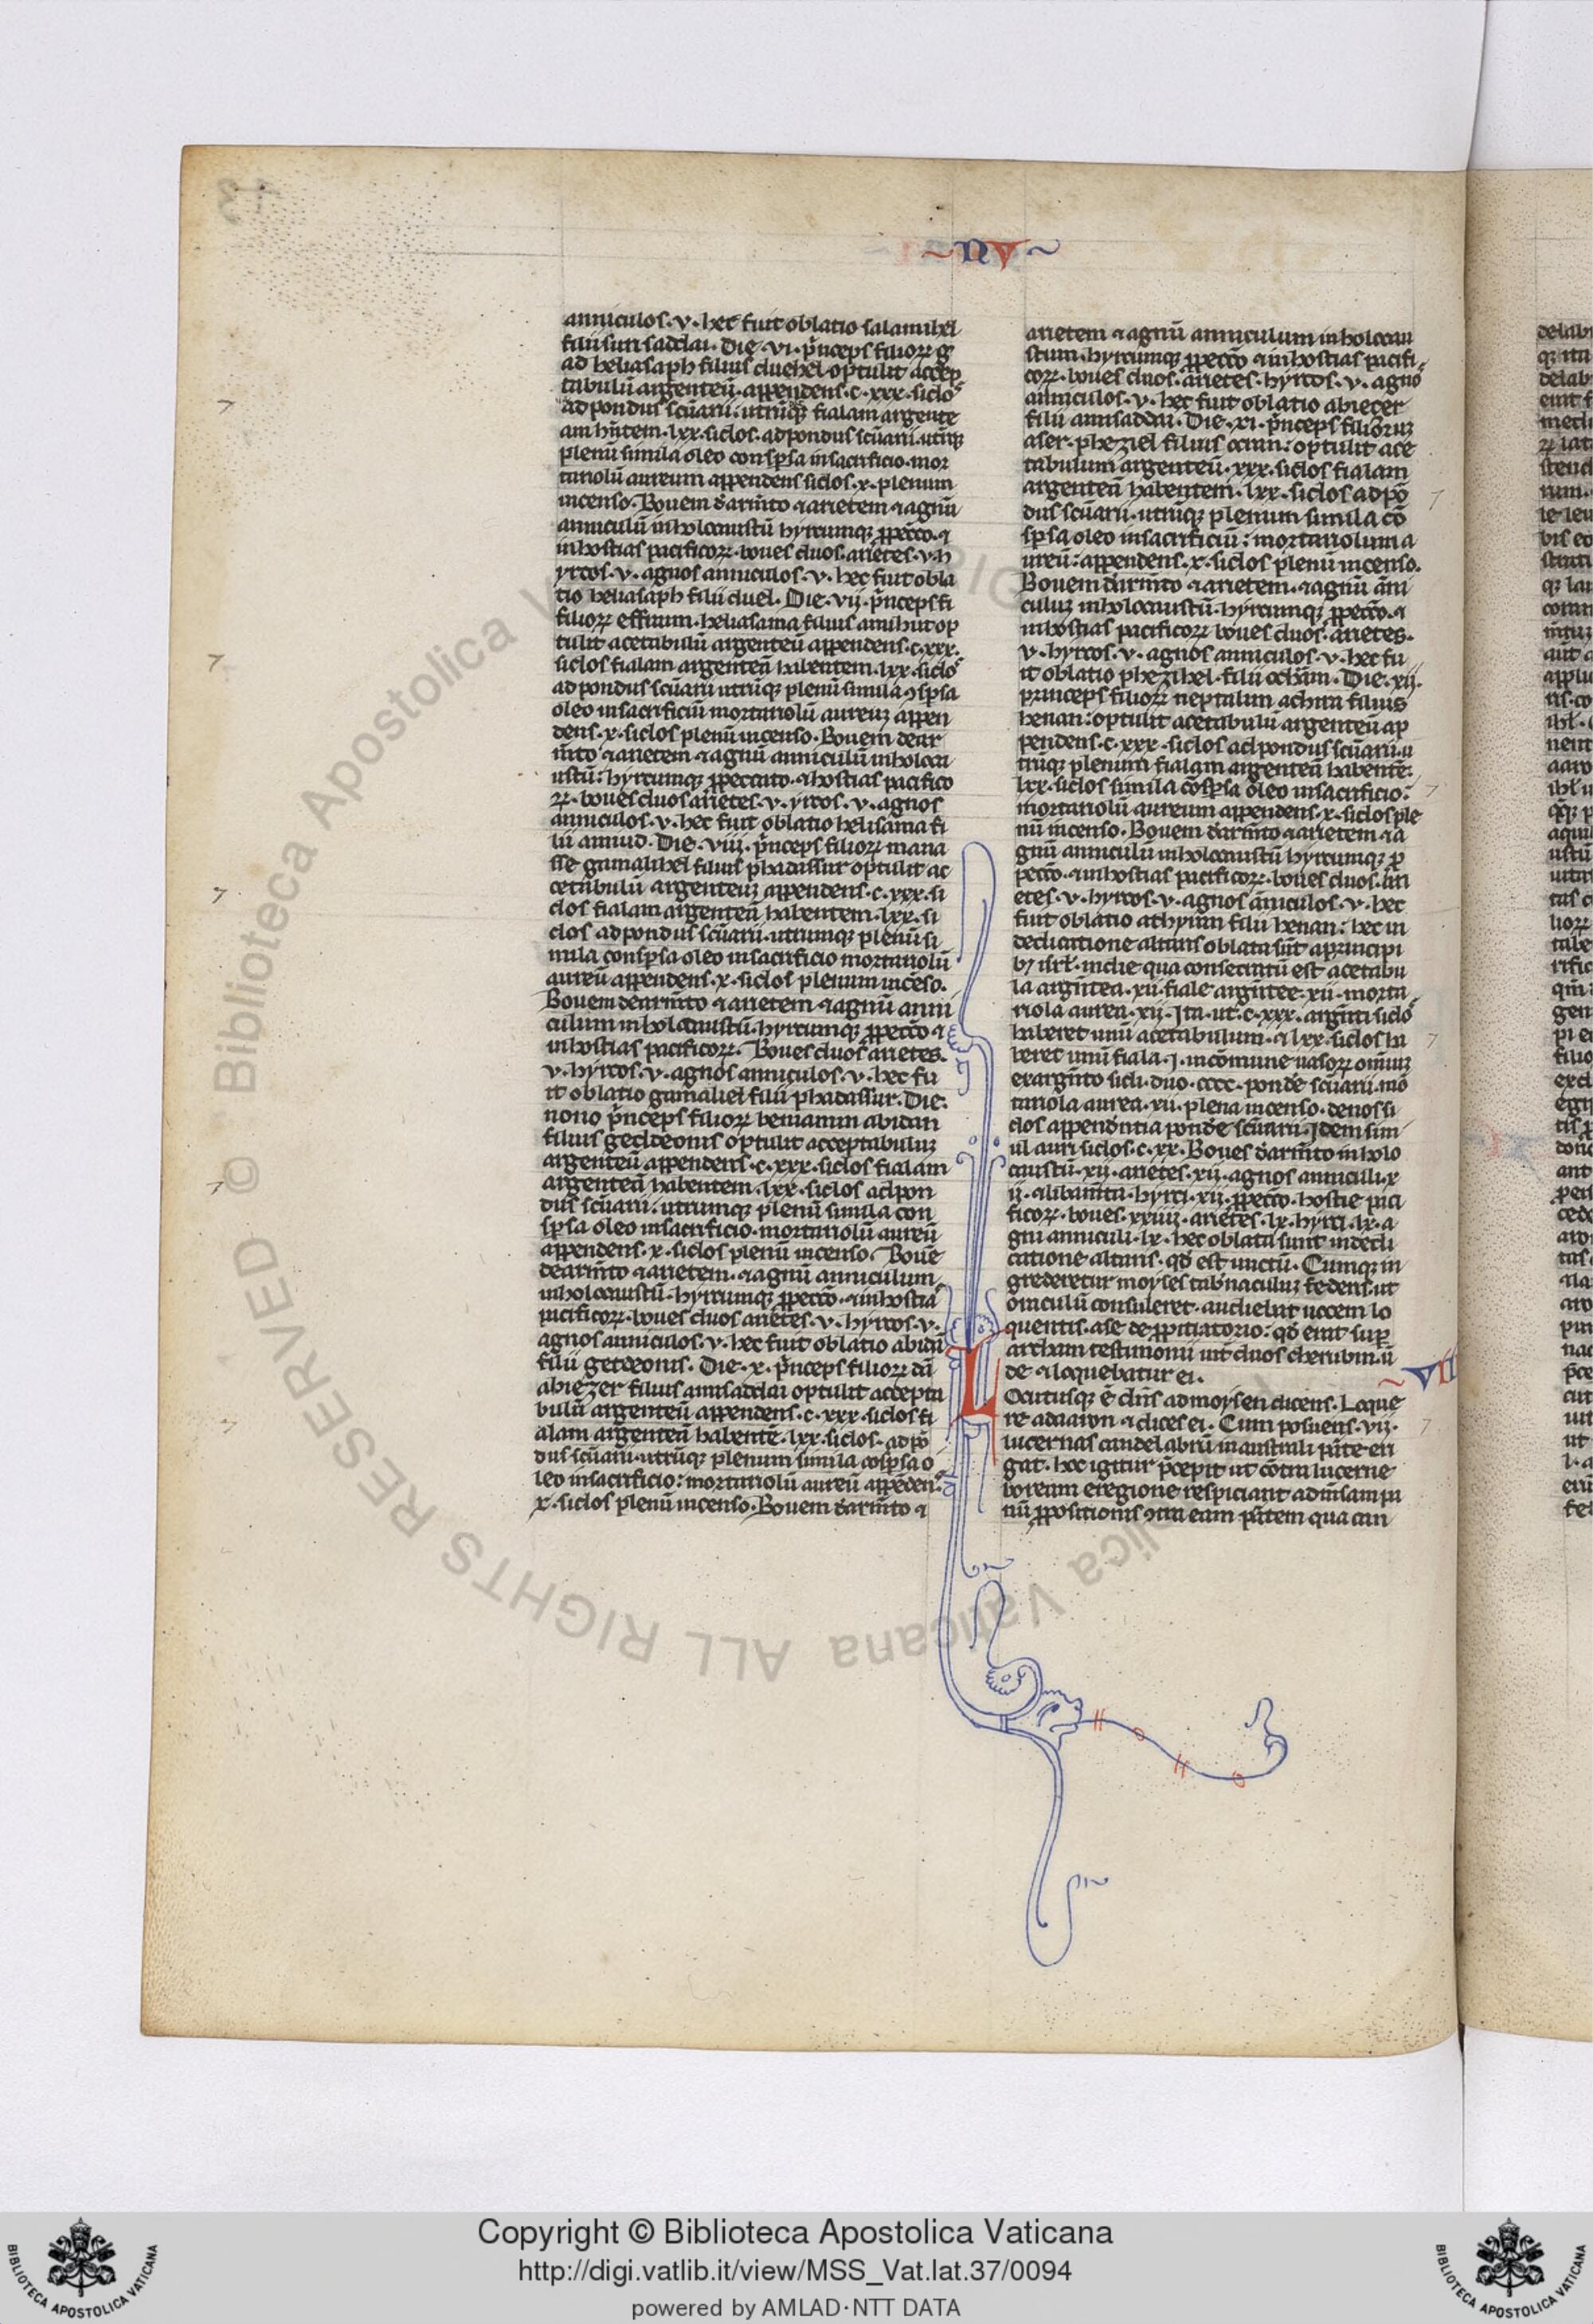 ~ NV ~
anniculos. v. hec fuit oblatio salamihel
filii suri saddai. Die. vi. p̃nceps filioꝝ g
ad heliasaph filius duehel optulit accep
tabulũ argenteũ. appendens. c. xxx. siclos
ad pondus scũarii. utrũq; fialam argente
am hñtem. lxx. siclos. ad pondus scũarii. utrũq;
plenũ simila oleo conspsa in sacrificio. mor
tariolũ aureum appendens siclos. x. plenum
incenso. Bouem darm̃to ⁊ arietem ⁊ agnũ
anniculũ in holocaustũ hyrcumq; ꝓ pecco. ⁊
in hostias pacificoꝝ. boues duos. arietes. v. h
yrcos. v. agnos anniculos. v. hec fuit obla
tio heliasaph filii duel. Die. vij. p̃nceps fi
filioꝝ effraim. heliasama filius amihut op
tulit acetabulũ argenteũ appendens. c. xxx.
siclos fialam argenteã habentem. lxx. siclos
ad pondus scũarii utrũq; plenũ simila ꝯspsa
oleo in sacrificiũ mortariolũ aureuz appen
dens. x. siclos plenũ incenso. Bouem dear
m̃to ⁊ arietem ⁊ agnũ anniculũ in holoca
ustũ: hyrcumq; ꝓ peccato. ⁊ hostias pacifico
ꝝ. boues duos arietes. v. yrcos. v. agnos
anniculos. v. hec fuit oblatio helisama fi
lii amiud. Die. viii. p̃nceps filioꝝ mana
sse gamalihel filius phadassur optulit ac
cetabulũ argenteuz appendens. c. xxx. si
clos fialam argenteã habentem. lxx. si
clos ad pondus scũarii. utrumq; plenũ si
mila conspsa oleo in sacrificio mortariolũ
aureũ appendens. x. siclos plenum incẽso.
Bouem dearm̃to ⁊ arietem ⁊ agnũ anni
culum in holocaustũ. hyrcumq; ꝓ pecco ⁊
in hostias pacificoꝝ. Boues duos arietes.
v. hyrcos. v. agnos anniculos. v. hec fu
it oblatio gamaliel filii phadassur. Die.
nono p̃nceps filioꝝ beniamin abidan
filius gedeonis optulit acceptabuluz
argenteũ appendens. c. xxx. siclos fialam
argenteã habentem. lxx. siclos ad pon
dus scũarii: utrumq; plenũ simila con
spsa oleo in sacrificio. mortariolũ aureũ
appendens. x. siclos plenũ incenso. Boue
dearm̃to ⁊ arietem. ⁊ agnũ anniculum
in holocaustũ. hyrcumq; ꝓ pecco. ⁊ in hostia
pacificoꝝ. boues duos arietes. v. hyrcos. v.
agnos anniculos. v. hec fuit oblatio abidã
filii gedeonis. Die. x. p̃nceps filioꝝ dã
abiezer filius amisaddai optulit accepta
bulũ argenteũ appendens. c. xxx. siclos fi
alam argenteã habentẽ. lxx. siclos. ad põ
dus scũarii. utrũq; plenum simila cõspsa o
leo in sacrificio: mortariolũ aureũ appẽdens
x. siclos plenũ incenso. Bouem darm̃to ⁊
arietem ⁊ agnũ anniculum in holocau
stum. hyrcumq; ꝓ pecco ⁊ in hostias pacifi
coꝝ. boues duos. arietes. hyrcos. v. agno
anniculos. v. hec fuit oblatio abiecer
filii amisaddai. Die. xi. p̃nceps filioruz
aser. pheziel filius ocran: optulit ace
tabulum argenteũ. xxx. siclos fialam
argenteã habentem. lxx. siclos ad põ
dus scũarii. utrũq; plenum simila cõ
spsa oleo in sacrificiũ: mortariolum a
ureũ: appendens. x. siclos plenũ incenso.
Bouem darm̃to ⁊ arietem. ⁊ agnũ ãni
culuz in holocaustũ. hyrcumq; ꝓ pecco. ⁊
in hostias pacificoꝝ boues duos. arietes.
v. hyrcos. v. agnos anniculos. v. hec fu
it oblatio phezihel. filii ochram. Die. xij.
princeps filioꝝ neptalim achira filius
henan: optulit acetabulũ argenteũ ap
pendens. c. xxx. siclos ad pondus scũarii. u
trũq; plenum fialam argenteã habentẽ:
lxx. siclos simila cõspsa oleo in sacrificio:
mortariolũ aureum appendens. x. siclos ple
nũ incenso. Bouem darm̃to ⁊ arietem ⁊ a
gnũ anniculũ in holocaustũ hyrcumq; ꝓ
pecco. ⁊ in hostias pacificoꝝ. boues duos. ari
etes. v. hyrcos. v. agnos ãniculos. v. hec
fuit oblatio athyram filii henan: hec in
dedicatione altaris oblata sũt a principi
b; isrł. in die qua consecratũ est acetabu
la argñtea. xii. fiale argñtee. xii. morta
riola aurea. xij. Ita. ut. c. xxx. argñti siclo
haberet unũ acetabulum. ⁊ lxx. siclos ha
beret unũ fiala. i. in cõmune uasoꝝ omĩuz
ex argñto sicli. duo. cccc. ponde scũarii. mo
tariola aurea. xii. plena incenso. denos si
clos appendentia ponde scũarii. Idem sim
ul auri siclos. c. xx. Boues darm̃to in holo
caustũ. xii. arietes. xij. agnos anniculi. x
ij. ⁊ libam̃ta. hyrci. xii. ꝓ pecco. hostie paci
ficoꝝ. boues. xxiiij. arietes. lx. hyrci. lx. a
gni anniculi. lx. hec oblata sunt in dedi
catione altaris. qd est unctũ. Cumq; in
grederetur moyses tabnaculuz federis. ut
oraculũ consuleret. audiebat uocem lo
quentis. ase de ꝓpitiatorio: qd erat sup
archam testimonii int duos cherubin. ũ
de ⁊ loquebatur ei.
~ VII
Locutusq; ẽ dñs ad moysen dicens. Loque
re ad aaron ⁊ dices ei. Cum posueris. vij.
lucernas candelabrũ in australi pãte eri
gat. hoc igitur p̃cepit ut cõtra lucerne
boream e regione respiciant ad m̃sam pa
nũ ꝓpositionis ꝯtra eam pãtem qua can
© Biblioteca Apostolica Vaticana ALL RIGHTS RESERVED
Copyright © Biblioteca Apostolica Vaticana
http://digi.vatlib.it/view/MSS_Vat.lat.37/0094
powered by AMLAD·NTT DATA
BIBLIOTECA APOSTOLICA VATICANA
BIBLIOTECA APOSTOLICA VATICANA